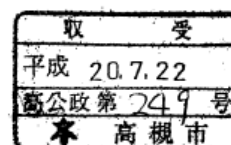 収 受
平成 20.7.22
高公政第 249 号
高槻市